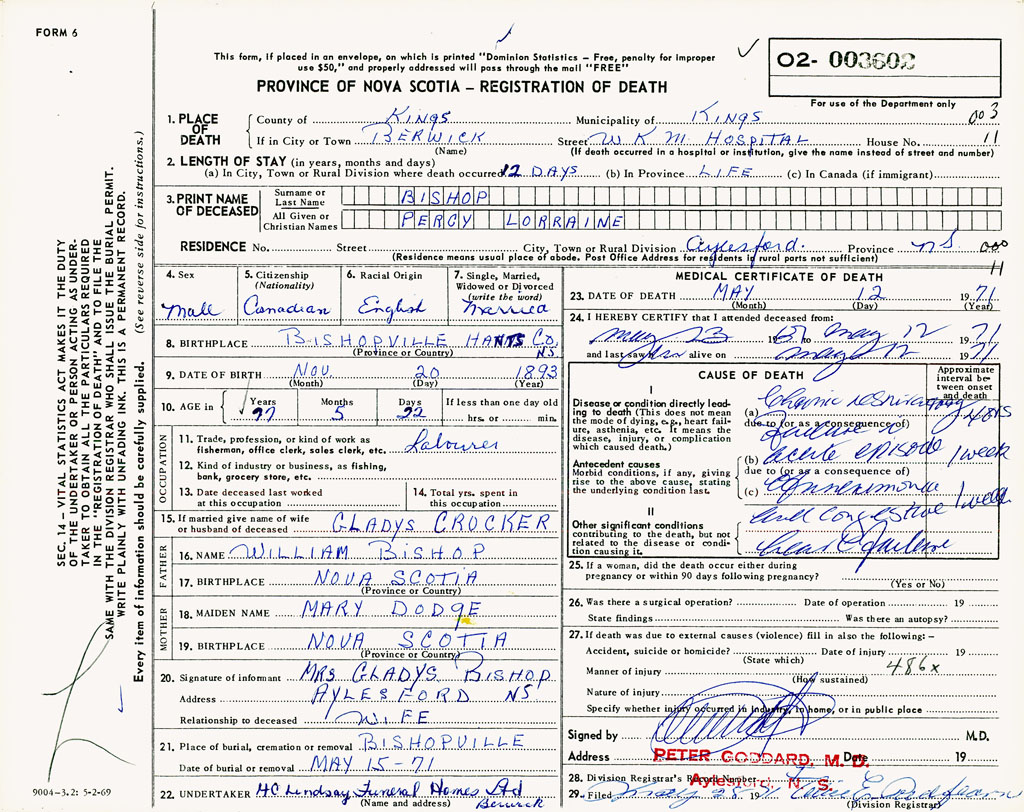 FORM 6
This form, if placed in an envelope, on which is printed "Dominion Statistics – Free, penalty for improper
use $50," and properly addressed will pass through the mail "FREE"
PROVINCE OF NOVA SCOTIA – REGISTRATION OF DEATH
02- 003602
For use of the Department only
003
11
1. PLACE OF DEATH
County of Kings Municipality of Kings
If in City or Town BERWICK Street W K M HOSPITAL House No.
(Name) (If death occurred in a hospital or institution, give the name instead of street and number)
2. LENGTH OF STAY (in years, months and days)
(a) In City, Town or Rural Division where death occurred 12 DAYS (b) In Province LIFE (c) In Canada (if immigrant)
3. PRINT NAME OF DECEASED
Surname or Last Name BISHOP
All Given or Christian Names PERCY LORRAINE
RESIDENCE No. Street City, Town or Rural Division Aylesford. Province NS 000
(Residence means usual place of abode. Post Office Address for residents in rural parts not sufficient)
11
4. Sex
Male
5. Citizenship (Nationality)
Canadian
6. Racial Origin
English
7. Single, Married, Widowed or Divorced (write the word)
Married
8. BIRTHPLACE BISHOPVILLE HANTS Co. NS
(Province or Country)
9. DATE OF BIRTH NOV. 20 1893
(Month) (Day) (Year)
10. AGE in Years 77 Months 5 Days 22 If less than one day old
hrs. or min.
OCCUPATION
11. Trade, profession, or kind of work as fisherman, office clerk, sales clerk, etc. Labourer
12. Kind of industry or business, as fishing, bank, grocery store, etc.
13. Date deceased last worked at this occupation
14. Total yrs. spent in this occupation
15. If married give name of wife or husband of deceased GLADYS CROCKER
FATHER
16. NAME WILLIAM BISHOP
17. BIRTHPLACE NOVA SCOTIA
(Province or Country)
MOTHER
18. MAIDEN NAME MARY DODGE
19. BIRTHPLACE NOVA SCOTIA
(Province or Country)
20. Signature of informant MRS GLADYS BISHOP
Address AYLESFORD NS
Relationship to deceased WIFE
21. Place of burial, cremation or removal BISHOPVILLE
Date of burial or removal MAY 15-71
22. UNDERTAKER HC Lindsay Funeral Homes Ltd
(Name and address) Berwick
MEDICAL CERTIFICATE OF DEATH
23. DATE OF DEATH MAY 12 1971
(Month) (Day) (Year)
24. I HEREBY CERTIFY that I attended deceased from:
May 23 19 to May 12 1971
and last saw him alive on May 12 1971
CAUSE OF DEATH
Approximate interval between onset and death
I
Disease or condition directly leading to death (This does not mean the mode of dying, e.g., heart failure, asthenia, etc. It means the disease, injury, or complication which caused death.)
(a) Chronic respiratory
due to (or as a consequence of)
failure
(b) acute episode 1 week
due to (or as a consequence of)
Antecedent causes
Morbid conditions, if any, giving rise to the above cause, stating the underlying condition last.
(c) pneumonia 1 week
II
Other significant conditions contributing to the death, but not related to the disease or condition causing it.
and Congestive
heart failure
25. If a woman, did the death occur either during pregnancy or within 90 days following pregnancy?
(Yes or No)
26. Was there a surgical operation? Date of operation 19
State findings Was there an autopsy?
27. If death was due to external causes (violence) fill in also the following:–
Accident, suicide or homicide? Date of injury 19
(State which)
486x
Manner of injury
(How sustained)
Nature of injury
Specify whether injury occurred in industry, in home, or in public place
Signed by M.D.
Address PETER GODDARD, M. D. Date 19
Aylesford, N. S.
28. Division Registrar's Record Number
29. Filed May 28
(Division Registrar)
SEC. 14 – VITAL STATISTICS ACT MAKES IT THE DUTY
OF THE UNDERTAKER OR PERSON ACTING AS UNDER-
TAKER TO OBTAIN ALL THE PARTICULARS REQUIRED
IN THE "REGISTRATION OF DEATH" AND TO FILE THE
SAME WITH THE DIVISION REGISTRAR WHO SHALL ISSUE THE BURIAL PERMIT.
WRITE PLAINLY WITH UNFADING INK. THIS IS A PERMANENT RECORD.
Every item of information should be carefully supplied. (See reverse side for instructions.)
9004-3.2: 5-2-69